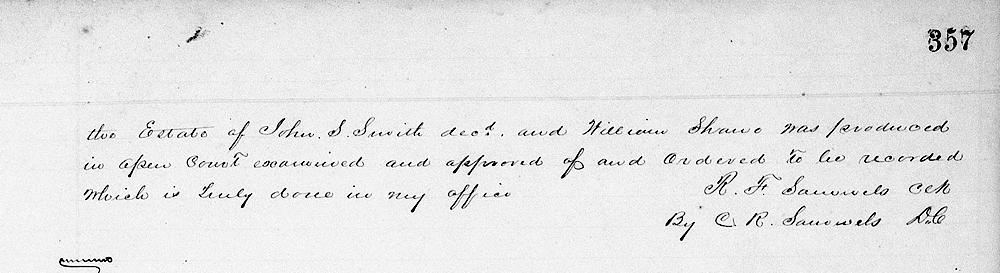 357
the Estate of John. S. Smith decd. and William Shaw was produced
in open Court examined and approved of and Ordered to be recorded
Which is truly done in my office R. F. Samuels Clk
By C R. Samuels D.C